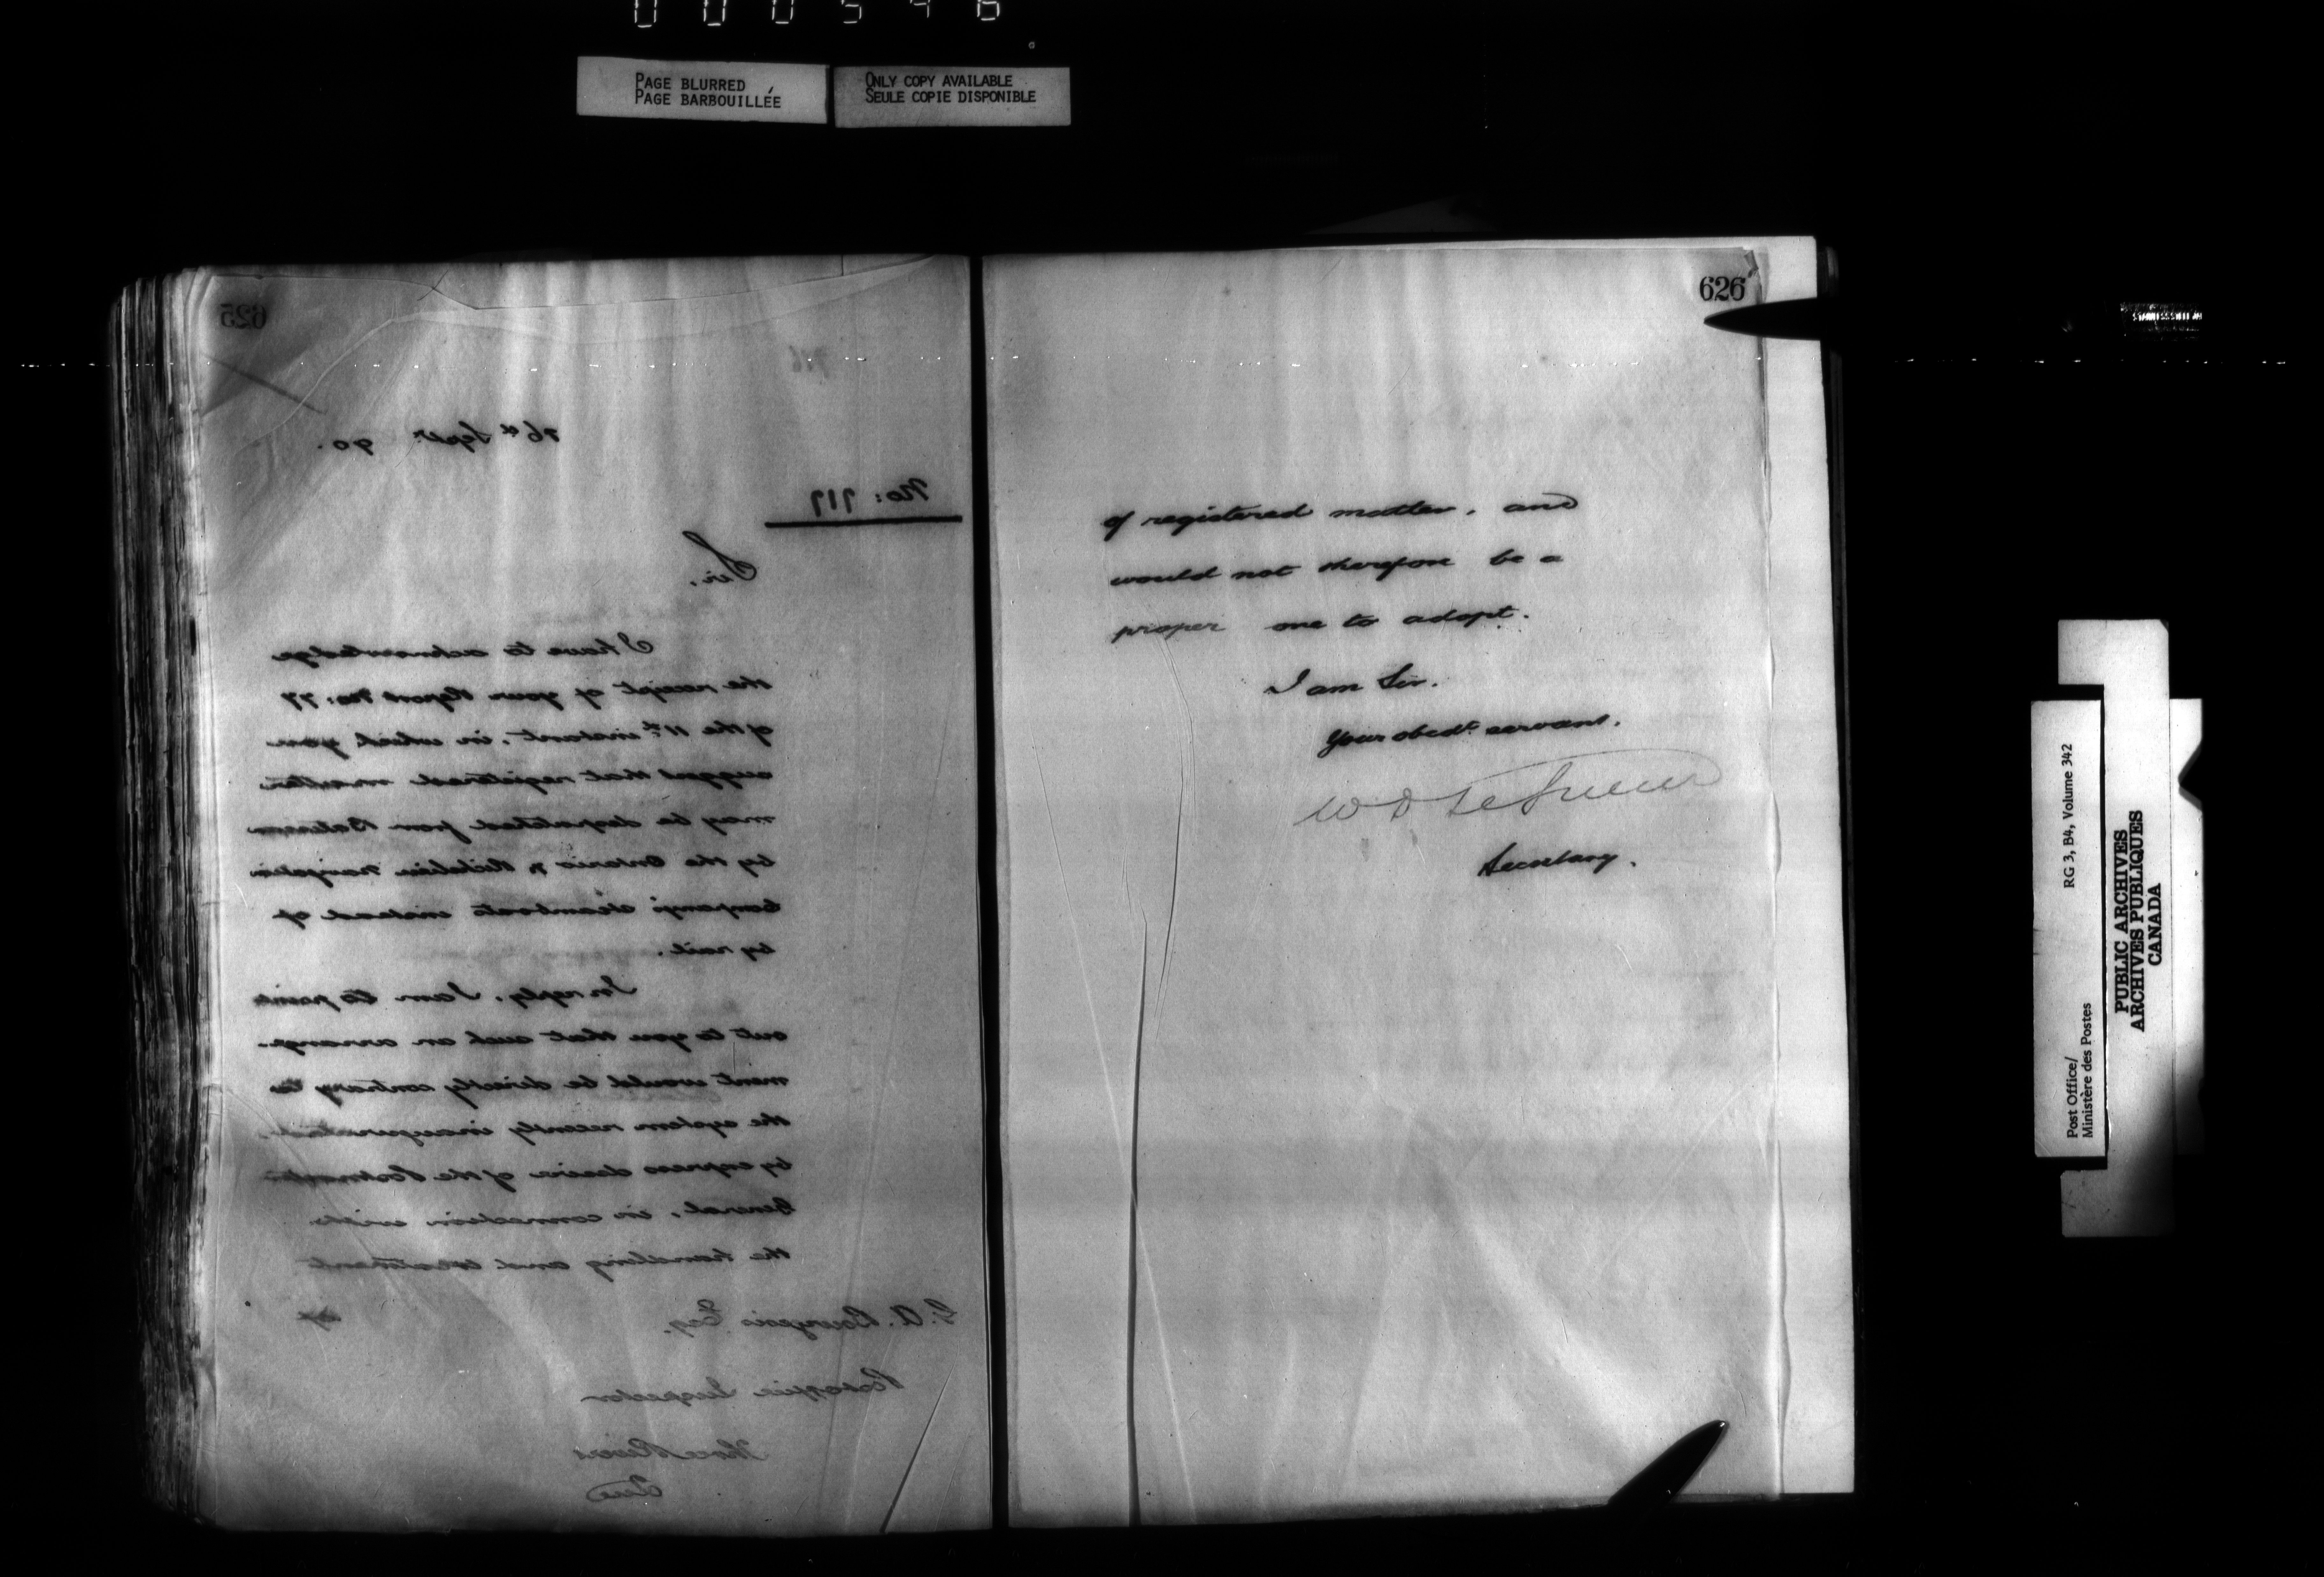 000546
PAGE BLURRED
PAGE BARBOUILLÉE
ONLY COPY AVAILABLE
SEULE COPIE DISPONIBLE
625
716
16th Septr. 90.
No: 717
Sir,
I have to acknowledge
the receipt of your Report No: 77
of the 11th instant, in which you
suggest that registered matter
may be despatched from Batiscan
by the Ontario & Richelieu Navigation
Company's steamboats instead of
by rail.
In reply, I am to point
out to you that such an arrange-
ment would be directly contrary to
the system recently inaugurated,
by express desire of the Postmaster
General, in connection with
the handling and treatment
of
G. A. Bourgeois Esq.
Post Office Inspector
Three Rivers
Que
626
of registered matter, and
would not therefore be a
proper one to adopt.
I am Sir,
Your obedt. servant,
W D LeSueur
Secretary.
Post Office/
Ministère des Postes
RG 3, B4, Volume 342
PUBLIC ARCHIVES
ARCHIVES PUBLIQUES
CANADA